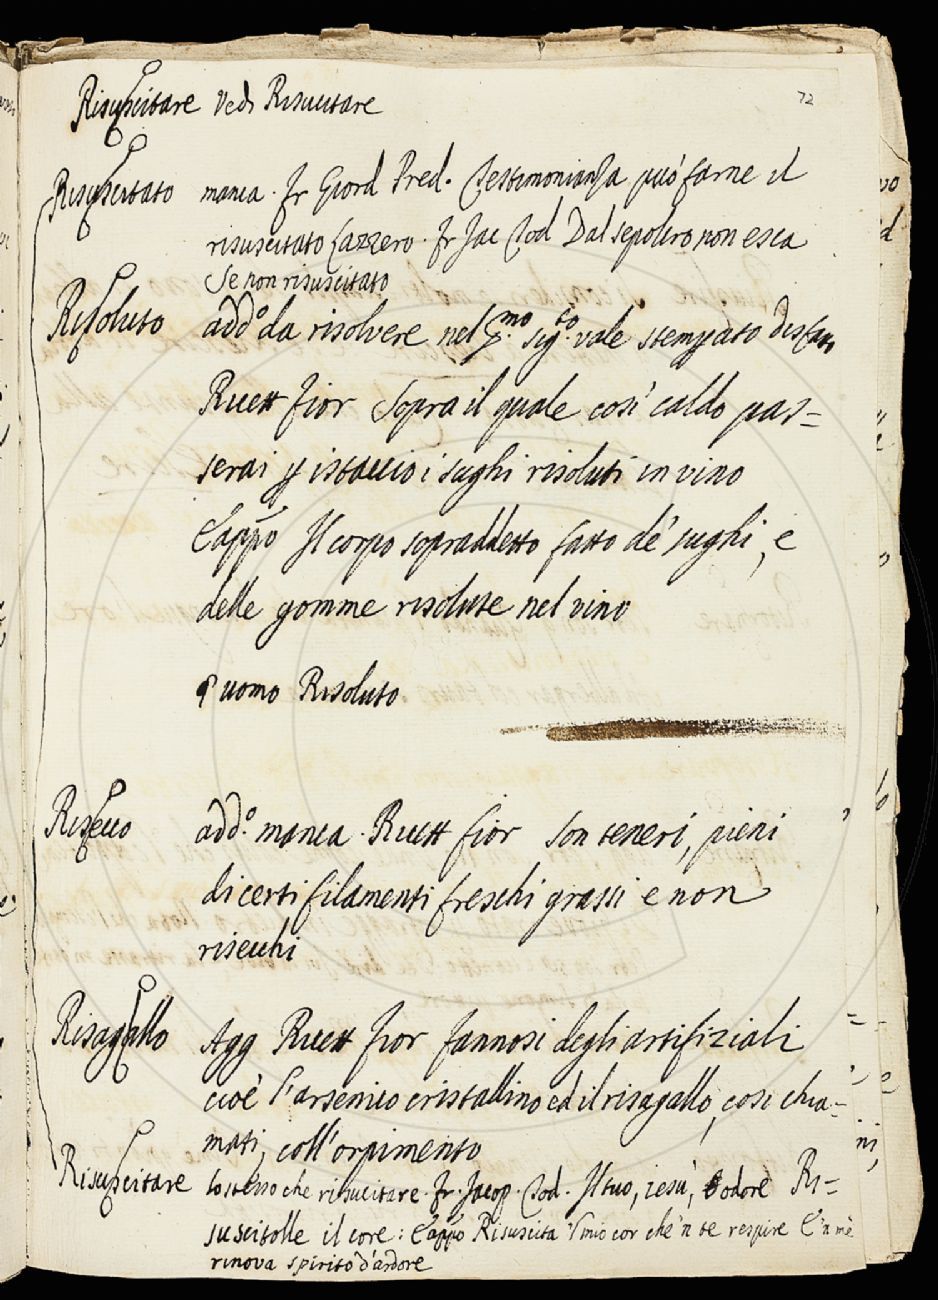 72
Risuscitare Vedi Risucitare
Risuscitato manca. Fr Giord Pred. Testimonianza può farne il
risuscitato Lazzero. Fr Jac Tod Dal sepolcro non esca
Se non risuscitato
Risoluto add.º da risolvere nel p.mo sig.to vale stemprato disfatto
Ricett fior Sopra il quale così caldo pas=
serai p istaccio i sughi risoluti in vino
Lappõ Il corpo sopraddetto fatto de' sughi, e
delle gomme risolute nel vino
uomo Risoluto
Risecco add.º manca. Ricett fior Son teneri, pieni
di certi filamenti freschi grassi e non
risecchi
Risagallo Agg Ricett fior fannosi degli artifiziali
cioè l'arsenico cristallino ed il risagallo, così chia=
mati, coll'orpimento
Risuscitare lo stesso che risucitare. Fr. Jacop. Tod. Il tuo, iesù, odore Ri=
suscitolle il core: Lappõ Risuscita 'l mio cor che 'n te respire E 'n me
rinova spirito d'ardore